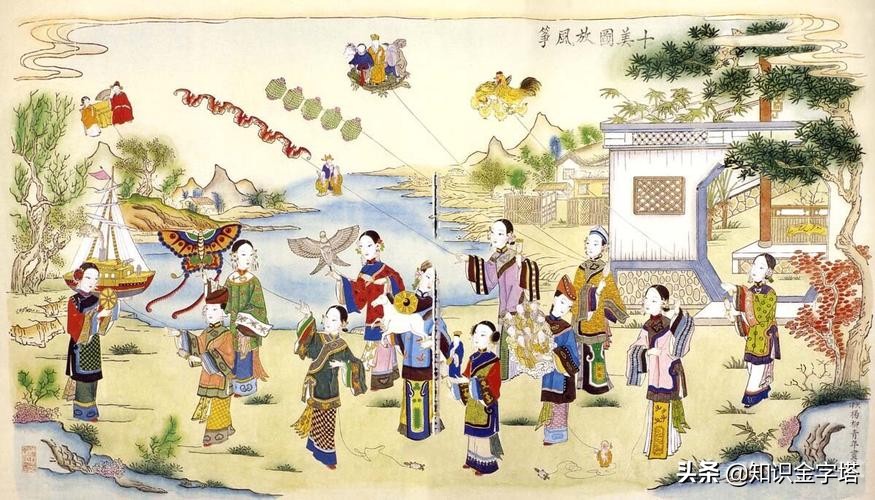 十美圖放風箏
楊柳青年畫
头条 @知识金字塔